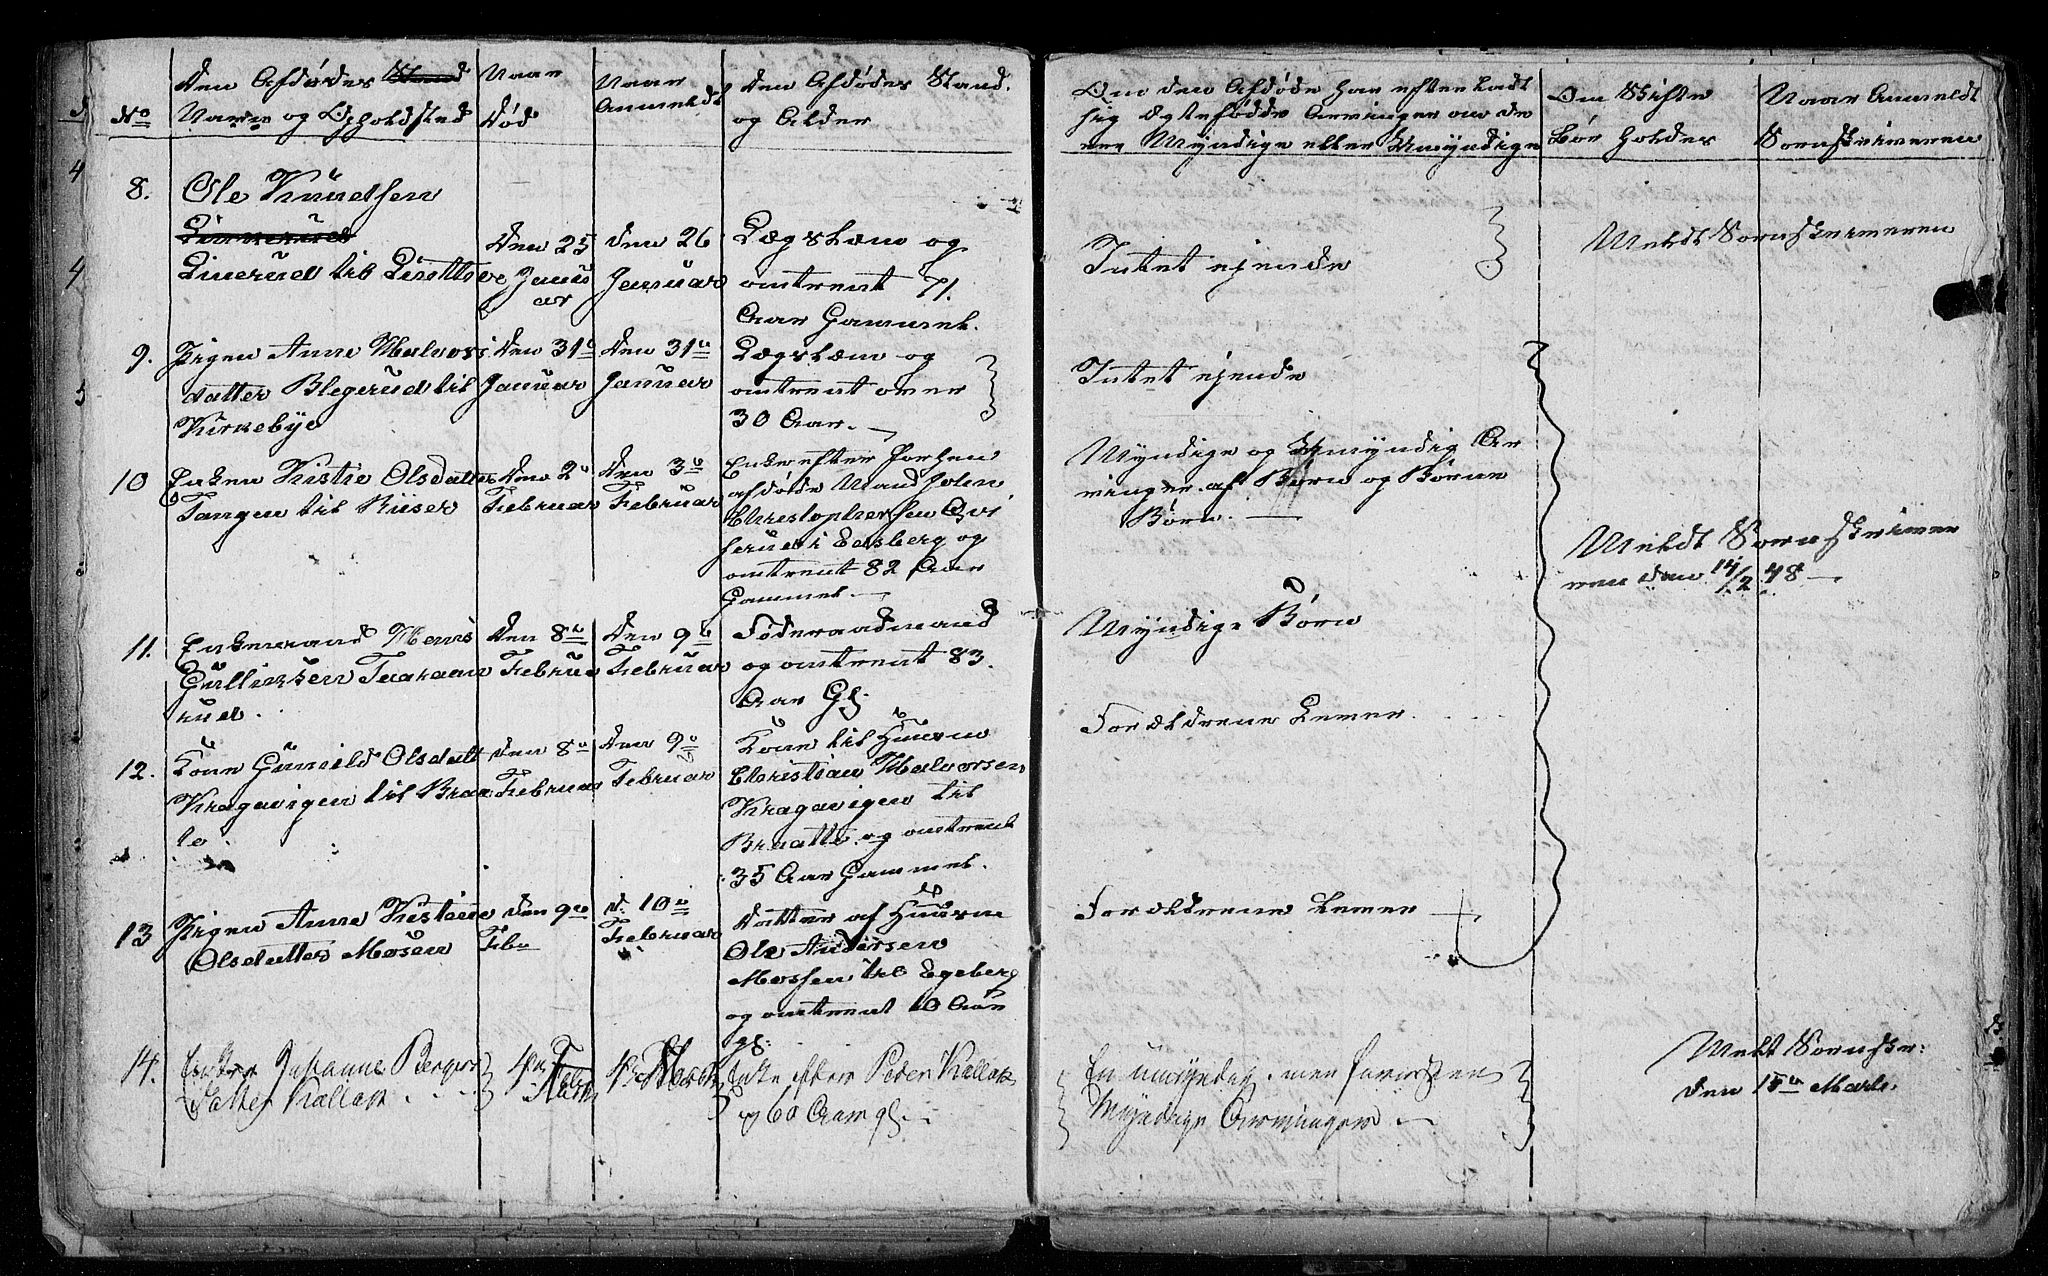 No
Den Afdødes Stand
Navn og Opholdsted
Naar
Død
Naar
Anmeldt
Den Afdødes Stand
og Alder
Om den Afdøde har efterladt
sig Ægtefødde Arvinger om de
ere Myndige eller Umyndige
Om Skifte
bør holdes
Naar Anmeldt
Sorenskriveren
8.
Ole Knudsen
Linerud til
Den 25
Janu
ar
den 26
Januar
Lægslem og
omtrent 71.
Aar Gammel.
Intet ejende
Meldt Sorenskriveren
9.
Pigen Anne Halvors
datter Blegerud til
Kirkebye
Den 31te
Januar
Den 31te
Januar
Lægslem og
omtrent over
30 Aar.
Intet ejende
10
Enken Kistie Olsdatter
Tangen til Riiser
den 2
Februar
den 3
Februar
Enke efter forhen
afdøde
Christophersen
i Eidsberg og
omtrent 82 Aar
Gammel.
Myndige og Umyndig Ar
vinger af Børn og Børne
Børn.
Meldt Sorenskriver
ren den 14/2 48
11.
Enkemand Hans
Gulliksen Taraan
rud.
Den 8de
Februa
Den 9de
Februar
Føderaadmand
og omtrent 83.
Aar Gl.
Myndige Børn
12.
Kone Gunild Olsdatt
Kragavigen til Braa
te.
den 8de
Februar
den 9de
Februar
Kone til Huusm
Christian Halvorsen
Kragavigen til
Braatte og omtrent
35 Aar Gammel.
Forældrene Lever.
13
Pigen Anne Kistine
Olsdatter Mosen
den 9de
Feb
d. 10de
Februar
Datter af Huusm
Ole Andersen
Mossen til Egeberg
og omtrent 10 Aar
gl.
Forældrene Lever
14.
Enken Johanne Berger
datter Kallak
4de
4de Marts
Enke efter Peder Kallak
og 60 Aar gl.
En umyndig, men forresten
Myndige Arvinger
Meldt Sorenskr:
den 15de Marts.